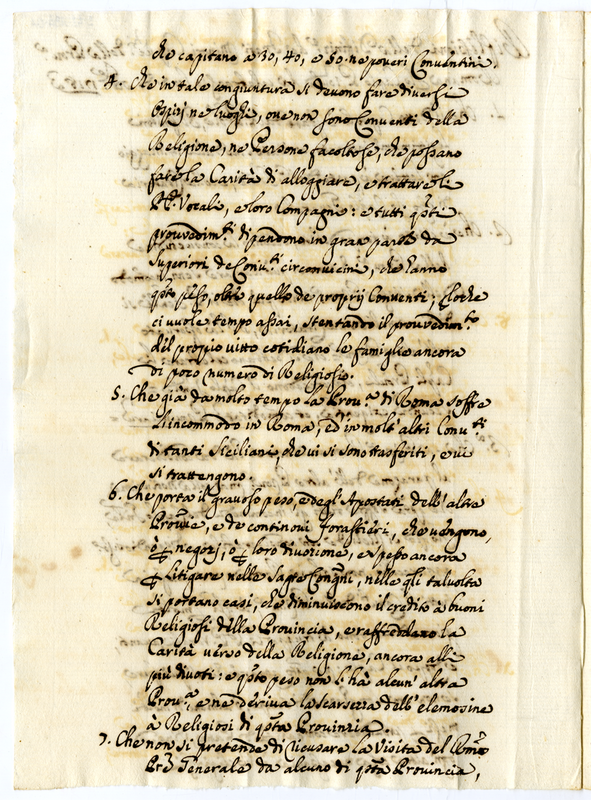 che capitano a 30, 40, e 50. ne poveri Conventini.
4. Che in tale congiuntura si devono fare diversi
Ospizij ne luoghi, ove non sono Conventi della
Religione, ne Persone facoltose, che possano
fare la Carità di alloggiare, e trattare li
PP. Vocali, e loro Compagni: e tutti qsti
provvedimti dipendono in gran parte da
Superiori de Convti circonvicini, che hanno
qsto peso, oltre quello de proprij Conventi;
ci vuole tempo assai, stentando il provvedimto
del propio vitto cotidiano le famiglie ancora
di poco numero di Religiosi.
5. Che già da molto tempo la Prova di Roma soffre
l'incommodo in Roma, ed in molt'altri Convti
di tanti Siciliani, che vi si sono trasferiti, e vi
si trattengono.
6. Che porta il gravoso peso, e degl'Apostati dell'altre
Provie, e de continovi forastieri, che vengono,
ò p negozj, ò p loro divozione, e spesso ancora
p litigare nelle Sagre Congni, nelle qli talvolta
si portano casi, che diminuiscono il credito à buoni
Religiosi della Provincia, e raffreddano la
Carità verso della Religione, ancora alli
più divoti: e qsto peso non l'hà alcun'altra
Prova, e ne deriva la scarsezza dell'elemosine
à Religiosi di qsta Provinzia.
7. Che non si pretende di ricusare la Visita del Rmo
Pre Generale da alcuno di qsta Provincia,